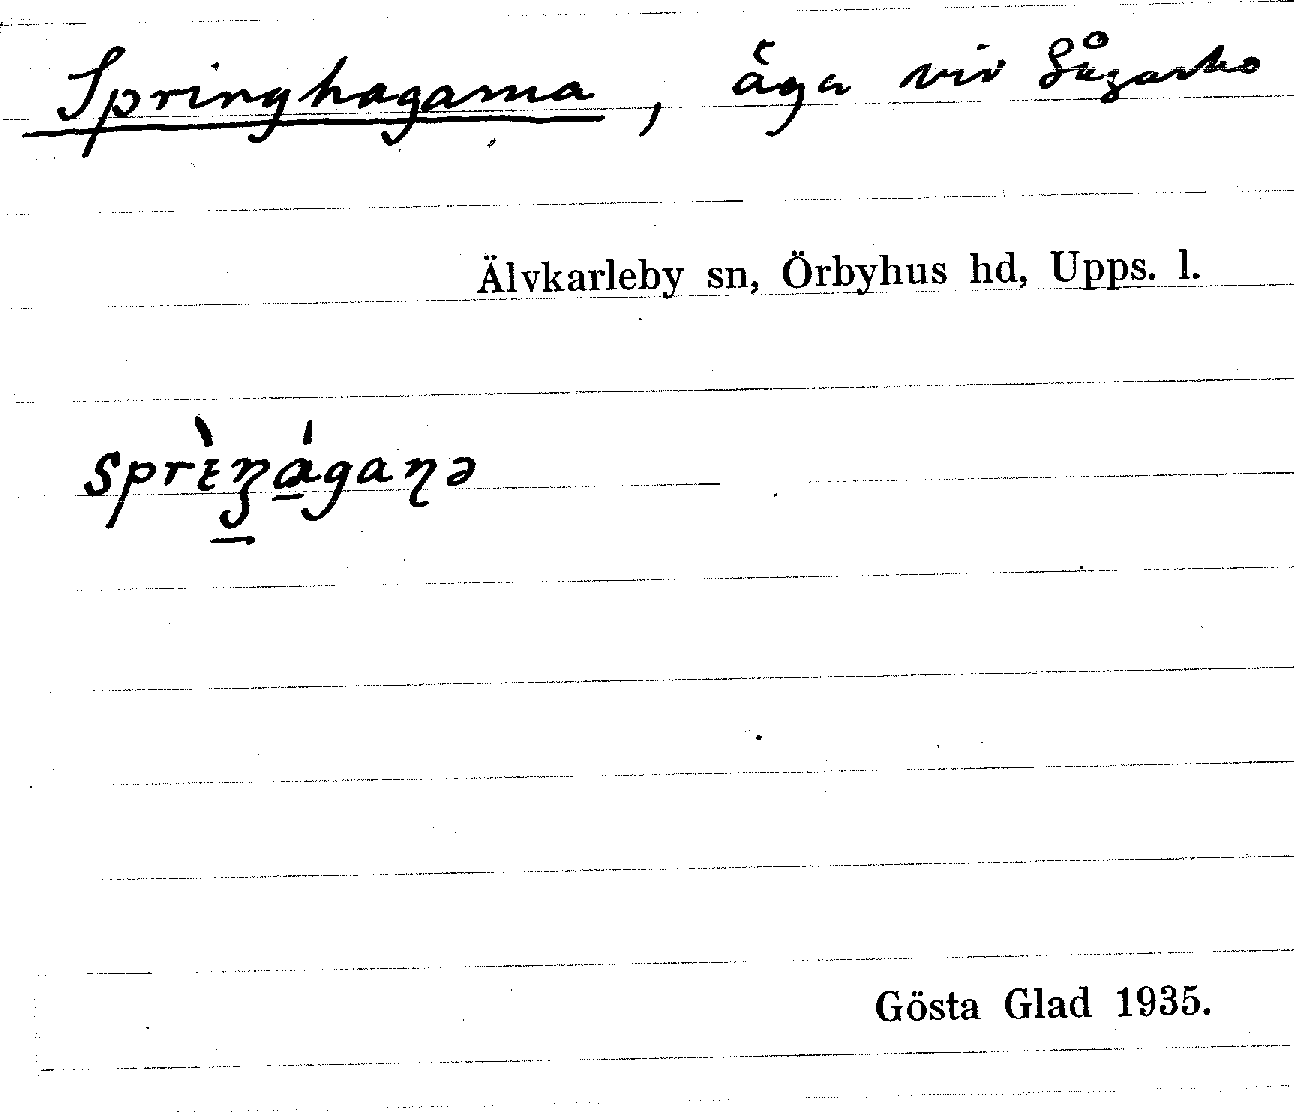 Springhagarna, äga vid Sågarbo
Älvkarleby sn, Örbyhus hd, Upps. l.
Gösta Glad 1935.